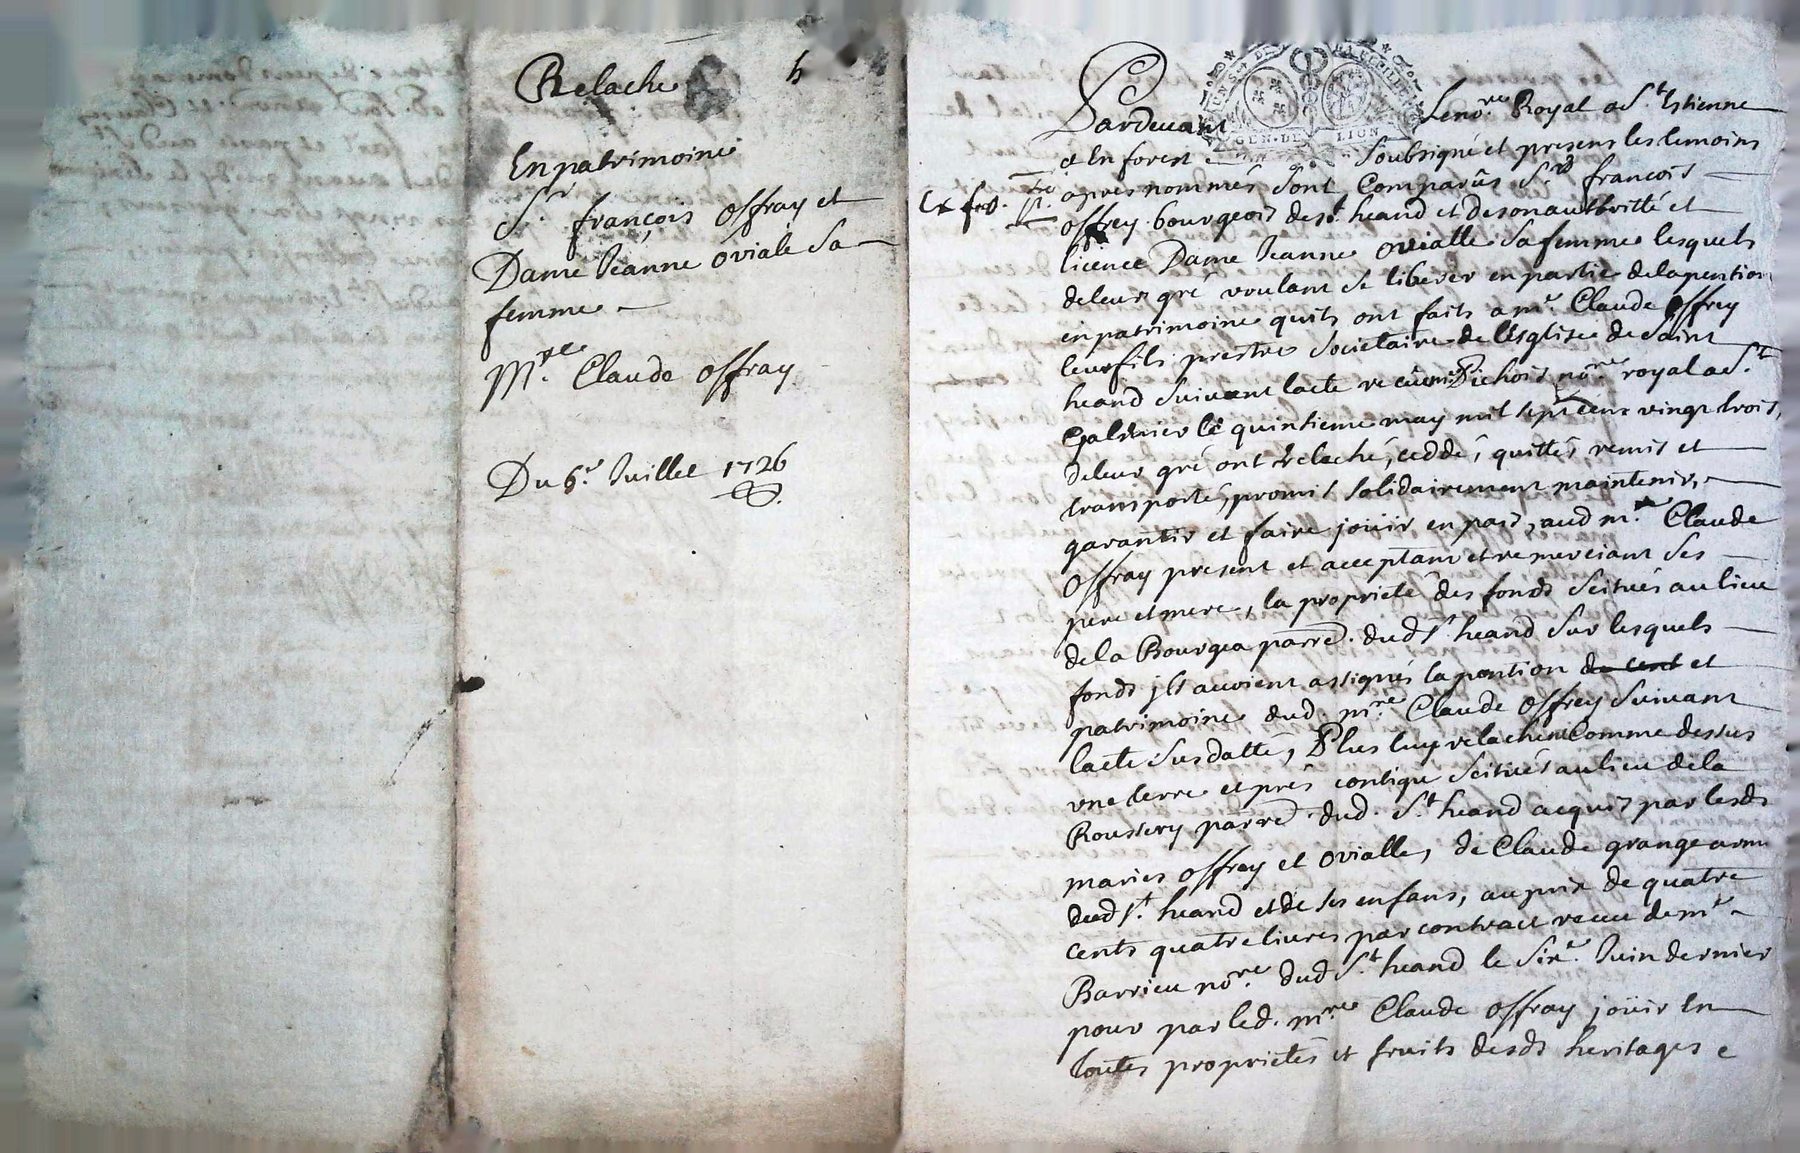 Relache
En patrimoine
S.r françois offray et
Dame Jeanne oviale Sa
femme
M.re Claude offray
Du 6.e Juillet 1726
GEN. DE LION
Pardevant Le no.re Royal a S.t Estienne
et En forest Soubsigné et presens les temoins
apres nommés Sont Comparûs S.r françois
offrey bourgeois de S.t heand et de son authoritté et
licence Dame Jeanne ovialle Sa femme lesquels
de leur gré voulant Se liberer en partie de la pention
en patrimoine quils ont faits a m.e Claude offrey
leur fils prestre Societaire de L'esglise de Saint
heand Suivant lacte receu m.e Pichois no.re royal a S.t
Galmier le quintieme may mil sept cent vingt trois,
de leur gré ont relaché, ceddé, quittés remis et
transporté, promis Solidairement maintenir,
garantir et faire joüir en paix, aud m.re Claude
offray present et acceptant et remerciant Ses
pere et mere, la proprieté des fonds Scitués au lieu
de la Bourgea parre. dud S.t heand Sur lesquels
fonds jls avoient assignés la pention de cent et
patrimoine dud. m.re Claude offrey Suivant
lacte Susdatté, Plus luy relachent Comme dessus
une terre et prés contigu Scitués au lieu de la
Roussery parre. dud. S.t heand acquis par lesds
maries offrey et ovialle, de Claude grange
dud S.t heand et de ses enfans, au prix de quatre
cents quatre livres par contract receu de m.e
Barrieu no.re dud S.t heand le Six.e Juin dernier
pour par led. m.re Claude offray joüir En
toutes proprietés et fruits desds heritages